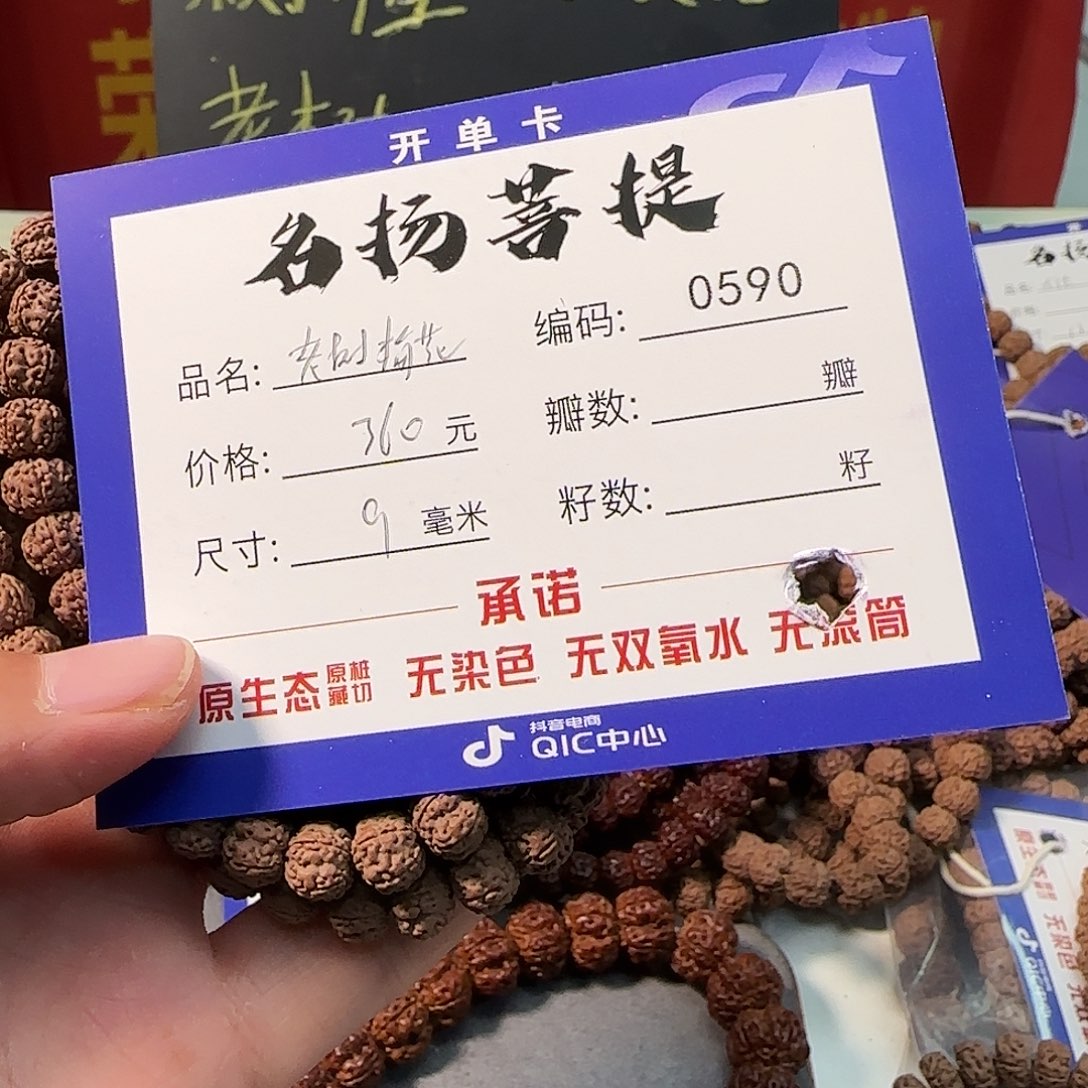 老树
开单卡
名扬菩提
品名: 老树梅花 编码: 0590
价格: 360 元 瓣数: 瓣
尺寸: 9 毫米 籽数: 籽
承诺
原生态 原桩藏切 无染色 无双氧水 无滚筒
抖音电商
QIC中心
名扬
无染色